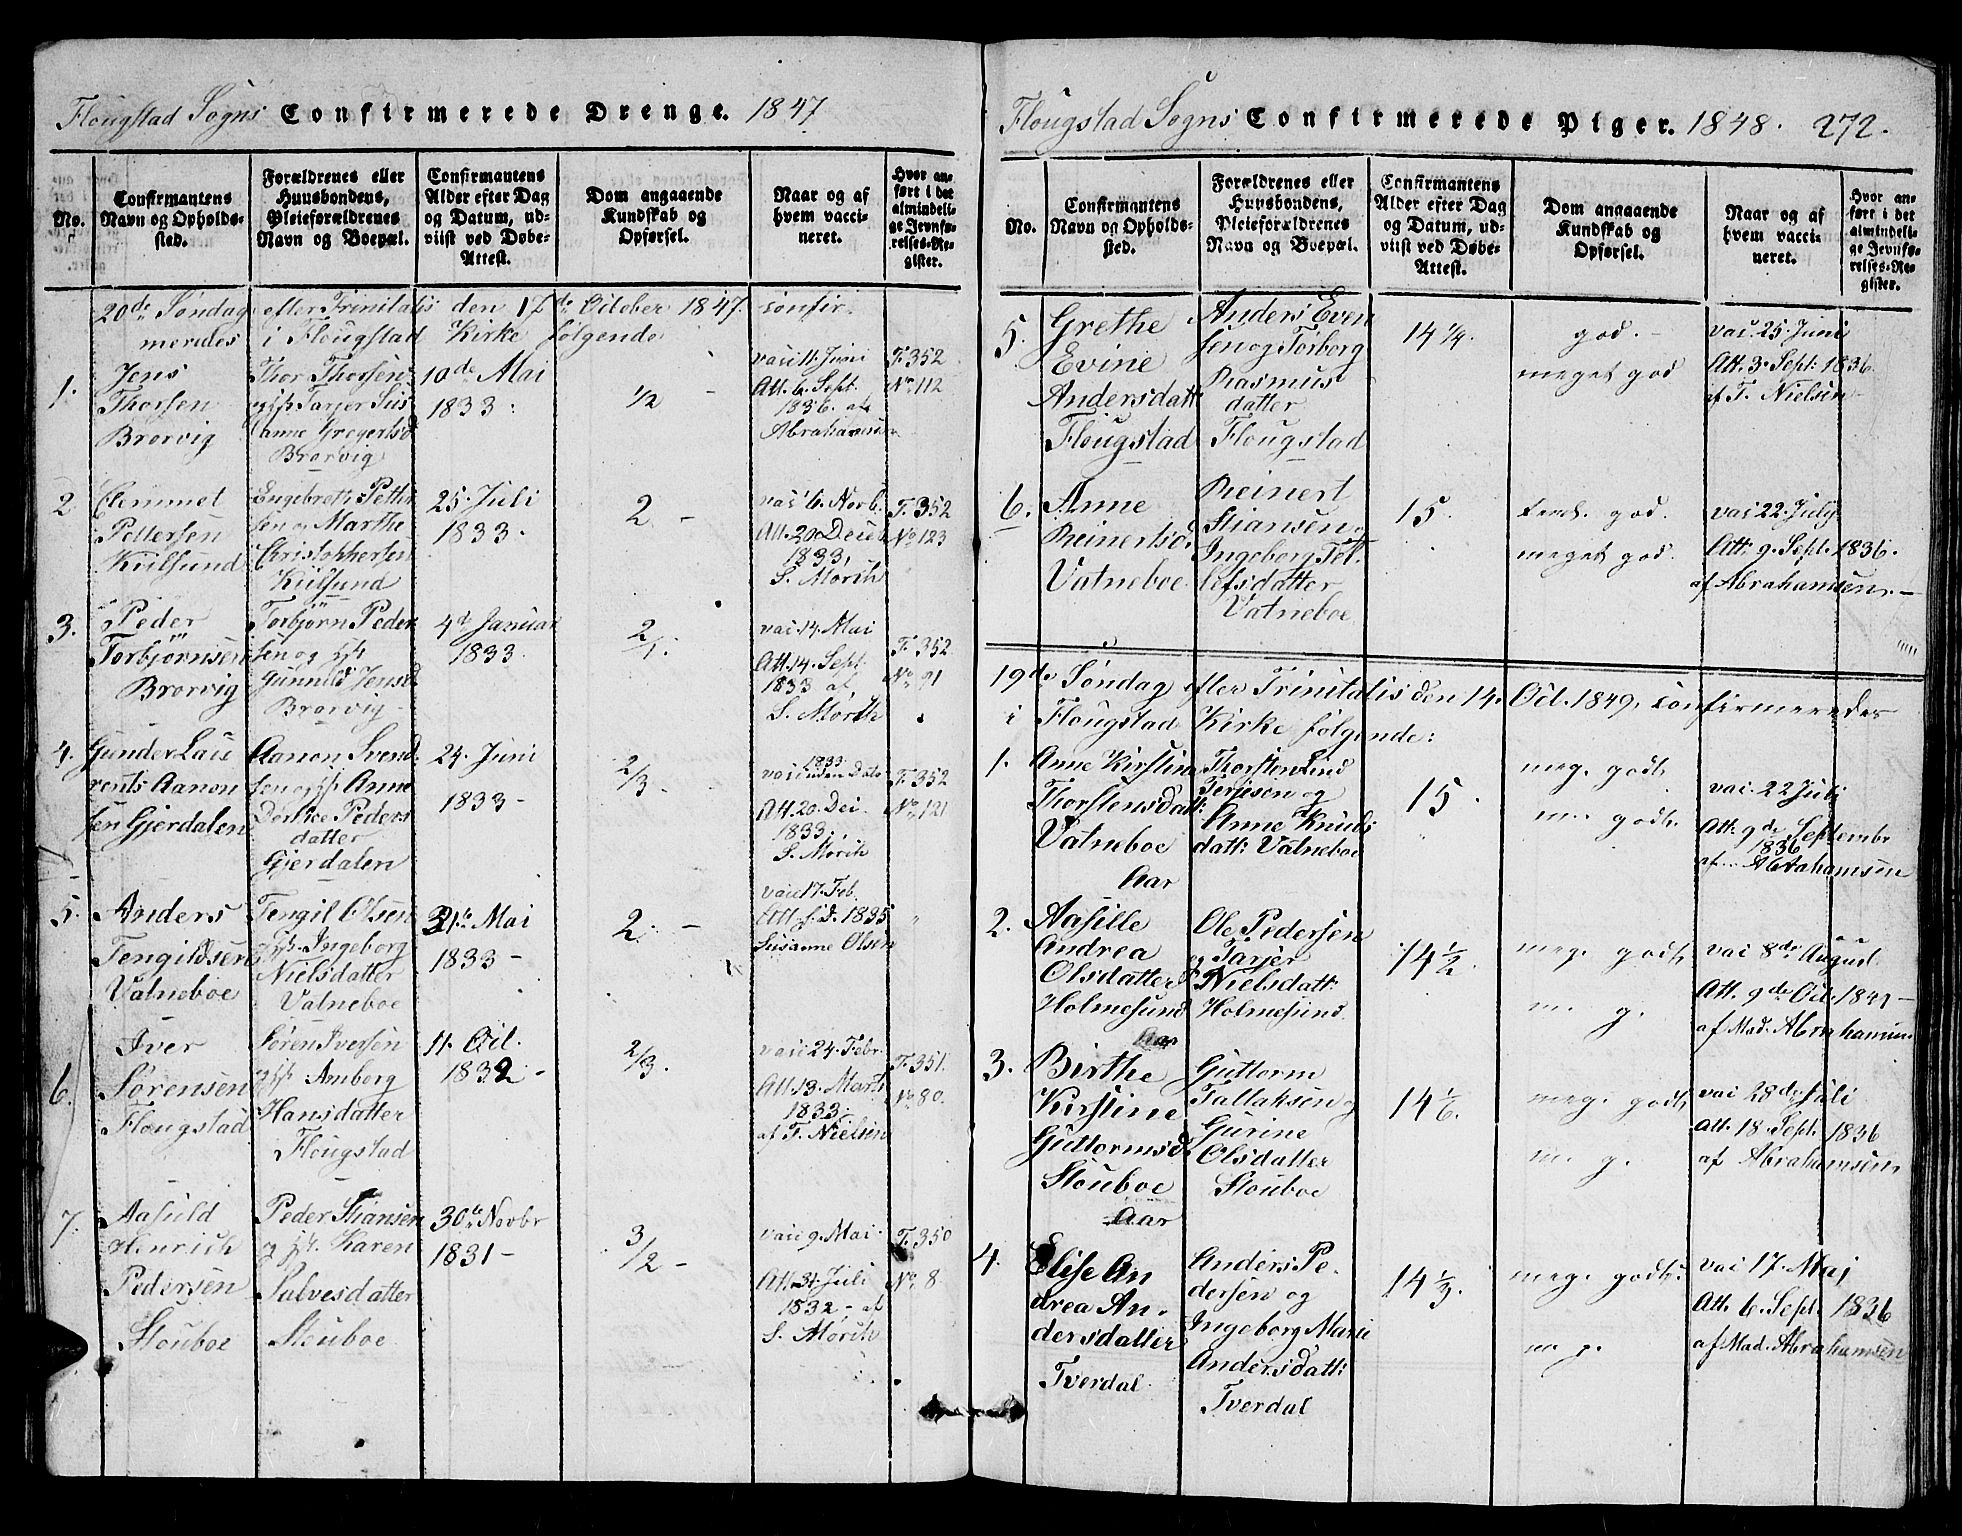 Flougstad Sogns Confirmerede Drenge. 1847
No.
Confirmantens
Navn og Opholds-
sted.
Forældrenes eller
Huusbondens,
Pleieforældrenes
Navn og Boepæl.
Confirmantens
Alder efter Dag
og Datum, ud-
viist ved Døbe-
Attest.
Dom angaaende
Kundskab og
Opførsel.
Naar og af
hvem vacci-
neret.
Hvor an-
ført i det
almindeli-
ge Jevnfø-
relses-Re-
gister.
20de Søndag efter Trinitatis den 17de October 1847. confir-
meredes i Flougstad Kirke følgende
1.
Jens
Thorsen
Brorvig
Thor Thorsen
Brorvig
10de Mai
1833.
1/2 -
vaci 11. Juni
Att. 6. Sept.
1836. af
Abrahamsen
F. 352
No. 112
2
Clemmet
Pettersen
Kiilsund
Engebreth Petter
sen og Marthe
Christophersen
Kiilsund
25. Juli
1833.
2 -
vaci 6. Novb.
Att. 20. Decb
1833,
S. Morith
F. 352
No. 123
3.
Peder
Torbjørnsen
Brorvig
Torbjørn Peder
sen og
Gunnild Jensd
Brorvig
4de Januar
1833.
2/1.
vaci 14. Mai
Att. 14. Sept.
1833 af
S. Morith
F. 352
No. 91
4.
Gunder Lau
rents Aanon
sen Gjerdalen
Aanon Svend
Anne
Peders
datter
Gjerdalen
24. Juni
1833 -
2/3.
1833
vaci uden Dato
Att. 20. Dec.
1833.
S. Morith
F. 352
No. 121
5.
Anders
Tengildsen
Vatneboe
Tengil Olsen
Ingeborg
Nielsdatter
Vatneboe
21de Mai
1833 -
2. -
vaci 17. Feb.
Att. s. D. 1835
Susanne Olsen
"
6.
Iver
Sørensen
Flougstad
Søren Iversen
Amborg
Hansdatter
Flougstad
11. Oct.
1832 -
2/3.
vaci 24. Febr.
Att. 13. Marts
1833.
af T. Nielsen
F. 351.
No. 80.
7.
Aasuld
Henrich
Pedersen
Stouboe
Peder Stiansen
og Karen
Salvesdatter
Stouboe
30de Novbr
1831 -
3/2 -
vaci 9. Mai
Att. 31. Juli
1832 - af
S. Morith
F. 350
No. 8.
Flougstad Sogns Confirmerede Piger. 1848. 272.
No.
Confirmantens
Navn og Opholds-
sted.
Forældrenes eller
Huusbondens,
Pleieforældrenes
Navn og Boepæl.
Confirmantens
Alder efter Dag
og Datum, ud-
viist ved Døbe-
Attest.
Dom angaaende
Kundskab og
Opførsel.
Naar og af
hvem vacci-
neret.
Hvor an-
ført i det
almindeli-
ge Jevnfø-
relses-Re-
gister.
5.
Grethe
Evine
Andersdatt
Flougstad
Anders Even
sen og Torborg
Rasmus
datter
Flougstad
14 1/4
god. -
meget god
vaci 25. Juni
Att. 3. Sept: 1836.
af T. Nielsen
6.
Anne
Reinertsd.
Vatneboe.
Reinert
Stiansen og
Ingeborg Tol
lefsdatter
Vatneboe
15.
god.
meget god.
vaci 22. July.
Att. 9. Sept. 1836.
af Abrahamsen. -
19de Søndag efter Trinitatis den 14. Oct. 1849, confirmeredes
i Flougstad Kirke følgende:
1.
Anne Kirstine
Thorstensdatt:
Vatneboe
Aar
Thorsten Lind
Terjesen og
Anne Knuds
datt: Vatneboe
15.
meg. godt.
m. godt.
vaci 22 Juli
Att. 9de Septembr
1836
af Abrahamsen
2.
Aasille
Andrea
Olsdatter
Holmesund
Aar
Ole Pedersen
og Tarjer
Nielsdatt.
Holmesund.
14 1/2.
meg. godt.
m. g.
vaci 8de August
Att. 9de Oct. 1849 -
af Mad. Abrahamsen
3.
Birthe
Kirstine
Guttormsd.
Stouboe
Aar
Guttorm
Tallaksen og
Gurine
Olsdatter
Stouboe
14 1/6.
meg. godt.
m. g.
vaci 28de Juli
Att. 18. Sept. 1836
af Abrahamsen
4.
Elise An
drea An-
dersdatter
Tverdal.
Anders Pe-
dersen og
Ingeborg Marie
Andersdatt:
Tverdal
14 1/3.
meg. godt.
m. g.
vaci 17. Maj
Att. 6. Sept. 1836
af Mad. Abrahamsen